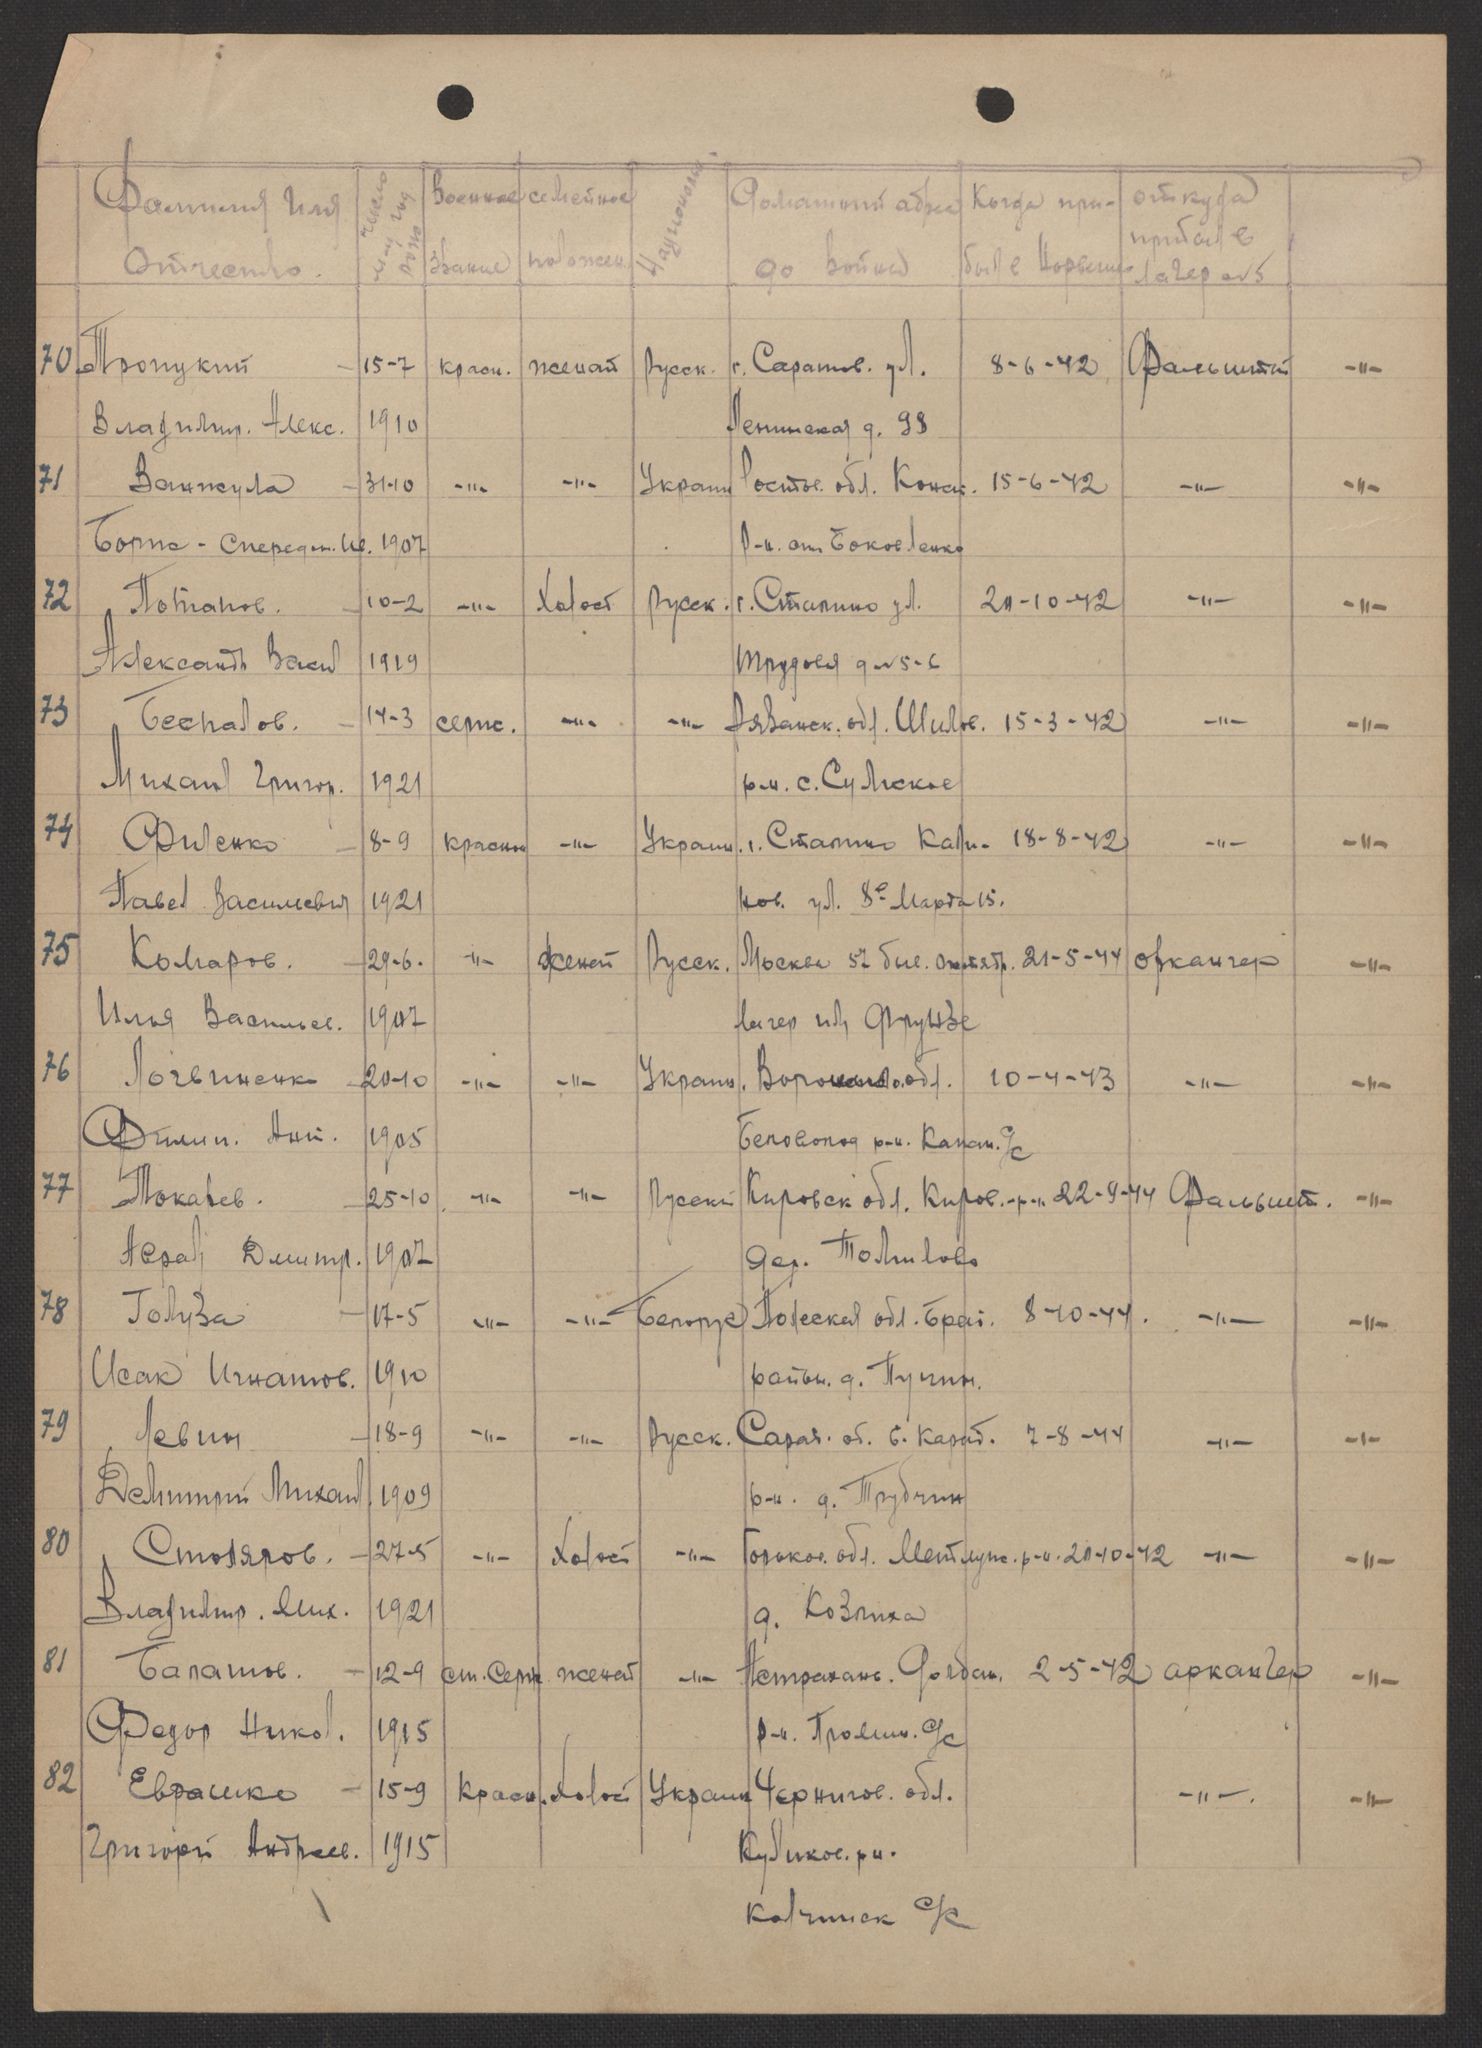 Фамилия Имя Отчество. | число м-ц год рож | Военное звание | семейное положен. | Национальн | Домашний адрес до войны | Когда при- был в Норвегию | откуда прибыл в лагерь №5
70 Троицкий – 15-7 красн. женат Русск. г. Саратов. ул. 8-6-42 Фальштат -"-
Владимир. Алекс. 1910 Ленинская д. 98
71 Ванжула – 31-10 -"- -"- Украин Ростов. обл. Конст. 15-6-42 -"- -"-
Борис - 1907 р-н.
72 Потапов. – 10-2 -"- Холост Русск. г. Сталино ул. 20-10-42 -"- -"-
Александр Васил 1919 Трудовая д №5-6
73 Беспалов. – 14-3 серж. -"- -"- Рязанск. обл. Шилов. 15-3-42 -"- -"-
Михаил Григор. 1921 р-н. с.
74 Филенко – 8-9 красноа -"- Украин. г. Сталино Кали- 18-8-42 -"- -"-
Павел Васильевич 1921 нов. ул. 8е Марта 15.
75 Комаров. – 29-6. -"- женат Русск. Москва 51 быв. Октябр. 21-5-44 архангер -"-
Илья Васильев. 1907 лагер им Фрунзе
76 Логвиненко – 20-10 -"- -"- Украин. Воронеж.обл. 10-4-43 -"- -"-
Филип. Ант. 1905 Беловопод р-н. Капан. с/с
77 Токарев. – 25-10 -"- -"- Русский Кировск обл. Киров. р-н. 22-9-44 Фальшт. -"-
Дмитр. 1907 дер. Томилово
78 Голуза – 17-5 -"- -"- Белорус Полеская обл. Браг. 8-10-44. -"- -"-
Исак Игнатов. 1910 район. д. Пучин.
79 Левин – 18-9 -"- -"- Русск. Сарат. об. б. Караб. 7-8-44 -"- -"-
Демитрий Михаил. 1909 р-н. д. Трубчин
80 Столяров. – 27-5 -"- Холост -"- Горьков. обл. р-н. 20-10-42 -"- -"-
Владимир. Мих. 1921 д. Козлиха
81 Балашов. – 12-9 ст. Серж женат -"- Астрахань. 2-5-42 аркангер -"-
Федор Никол. 1915 р-н. с/с
82 Еврашко – 15-9 Красн. Холост Украин Чернигов. обл. -"-. -"-
Григорй Андреев. 1915 Куликов. рн.
Ковчинск с/с